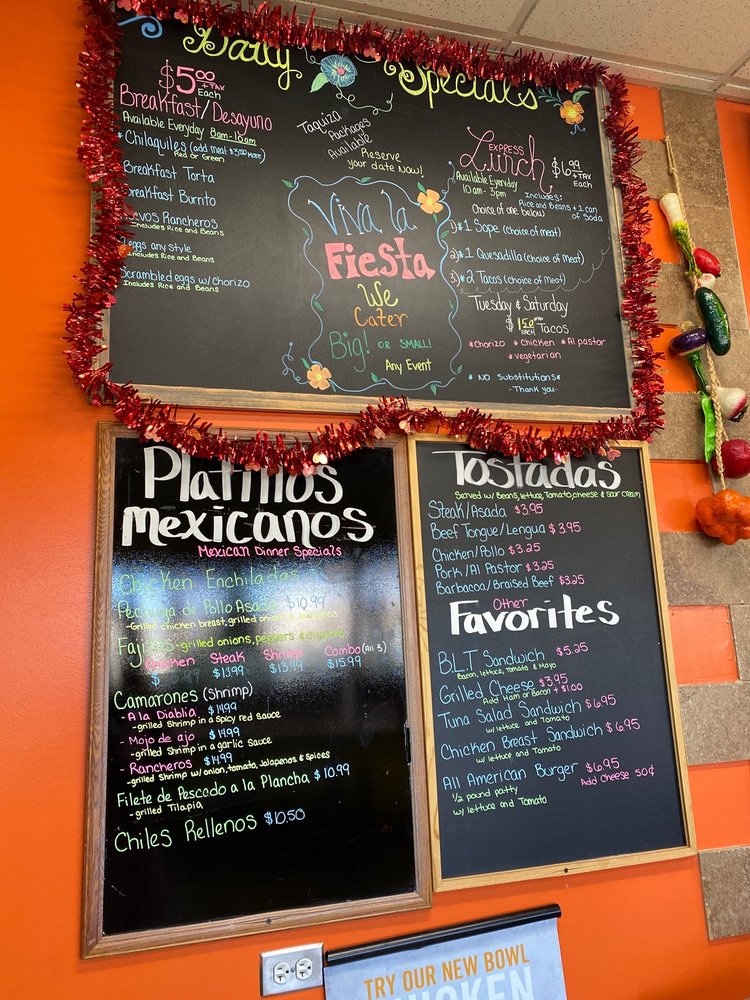 Daily Specials
$5.00 + TAX
Each
Breakfast/Desayuno
Available Everyday 8am-11am
*Chilaquiles (add meat $3.00 more)
Red or Green
Breakfast Torta
Breakfast Burrito
Huevos Rancheros
Includes Rice and Beans
2 eggs any Style
Includes Rice and Beans
Scrambled eggs w/ Chorizo
Includes Rice and Beans
Taquiza
Packages
Available
Reserve
your date Now!
Viva la
Fiesta
We
Cater
Big! OR SMALL!
Any Event
EXPRESS
Lunch $6.99
+TAX
Each
Available Everyday
10am-3pm
Includes:
Rice and Beans + 1 can
of Soda
Choice of one below
1)*1 Sope (choice of meat)
2)*1 Quesadilla (choice of meat)
3)*2 Tacos (choice of meat)
Tuesday & Saturday
$1.50 EACH Tacos
*Chorizo *Chicken *Al pastor
*vegetarian
* NO Substitutions*
-Thank you-
Platillos
Mexicanos
Mexican Dinner Specials
Chicken Enchiladas
Pechuga de Pollo Asado $10.99
-Grilled chicken breast, grilled onions &
Fajitas -grilled onions, peppers &
Chicken Steak Shrimp Combo (All 3)
$ $13.99 $13.99 $15.99
Camarones (Shrimp)
- A la Diabla $14.99
-grilled Shrimp in a spicy red sauce
- Mojo de ajo $14.99
-grilled Shrimp in a garlic Sauce
- Rancheros $14.99
-grilled Shrimp w/ onion, tomato, Jalapenos & spices
Filete de Pescado a la Plancha $10.99
-grilled Tilapia
Chiles Rellenos $10.50
Tostadas
Served w/ Beans, lettuce, Tomato, cheese & sour cream
Steak/Asada $3.95
Beef Tongue/Lengua $3.95
Chicken/Pollo $3.25
Pork/Al Pastor $3.25
Barbacoa/Braised Beef $3.25
Other
Favorites
B.L.T Sandwich $5.25
Bacon, lettuce, Tomato & Mayo
Grilled Cheese $3.95
Add Ham or Bacon + $1.00
Tuna Salad Sandwich $6.95
w/ lettuce and Tomato
Chicken Breast Sandwich $6.95
w/ lettuce and Tomato
All American Burger $6.95
1/2 pound patty Add Cheese 50¢
w/ lettuce and Tomato
TRY OUR NEW BOWL
CHICKEN